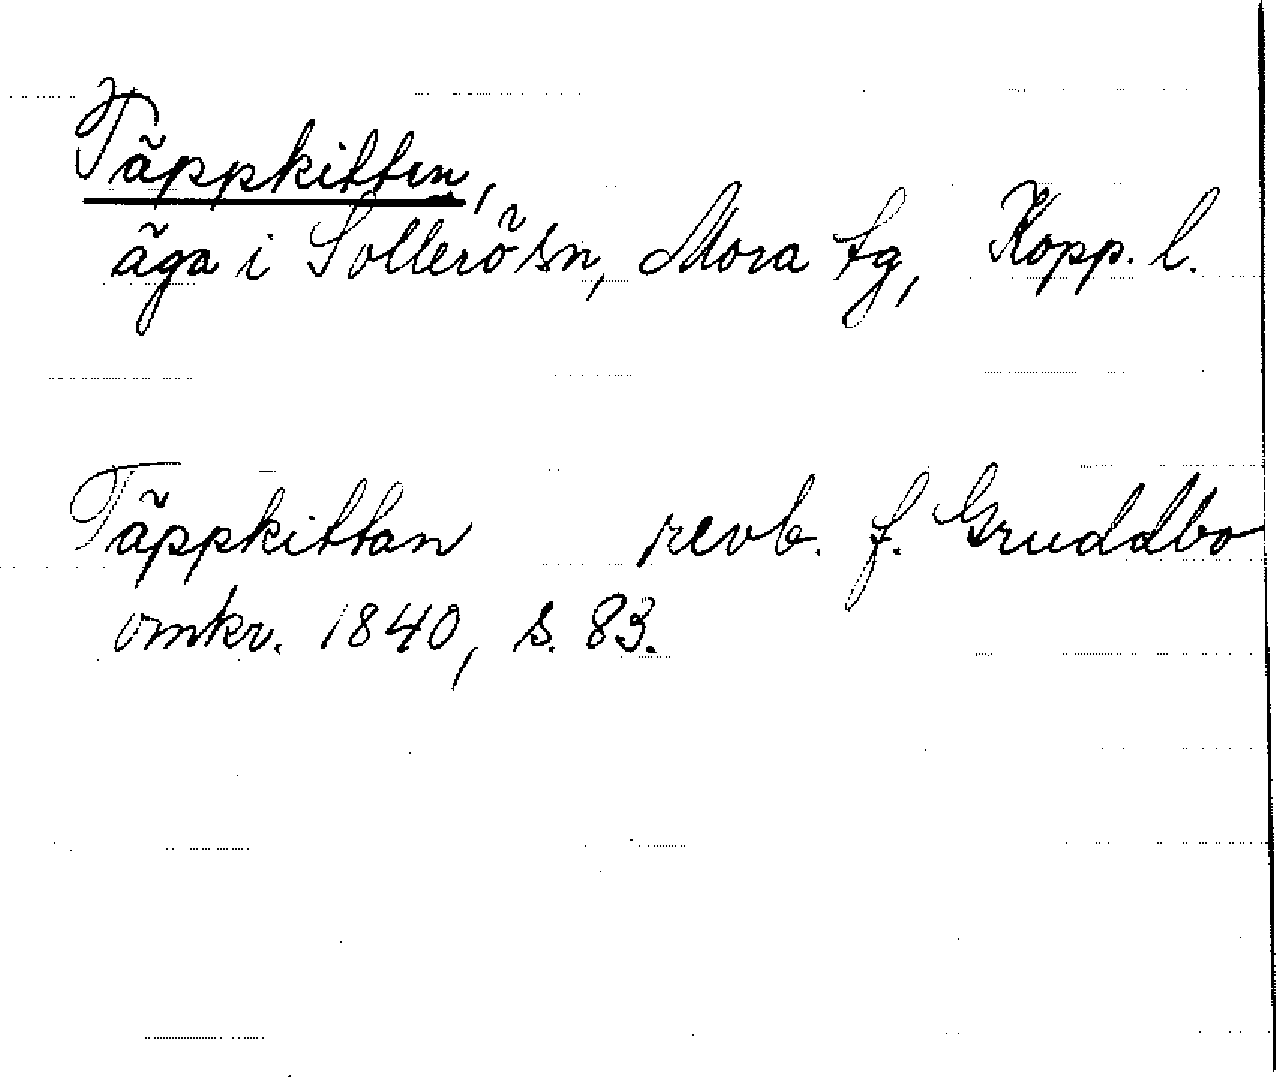 Täppkitten,
äga i Sollerö sn, Mora tg, Kopp. l.
Täppkittan revb. f. Gruddbo
omkr. 1840, s. 83.